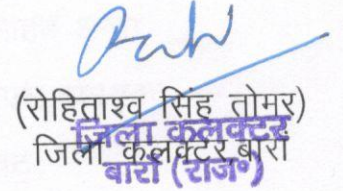 (रोहिताश्व सिंह तोमर)
जिला कलक्टर
जिला कलक्टर,बारां
बारां (राज॰)